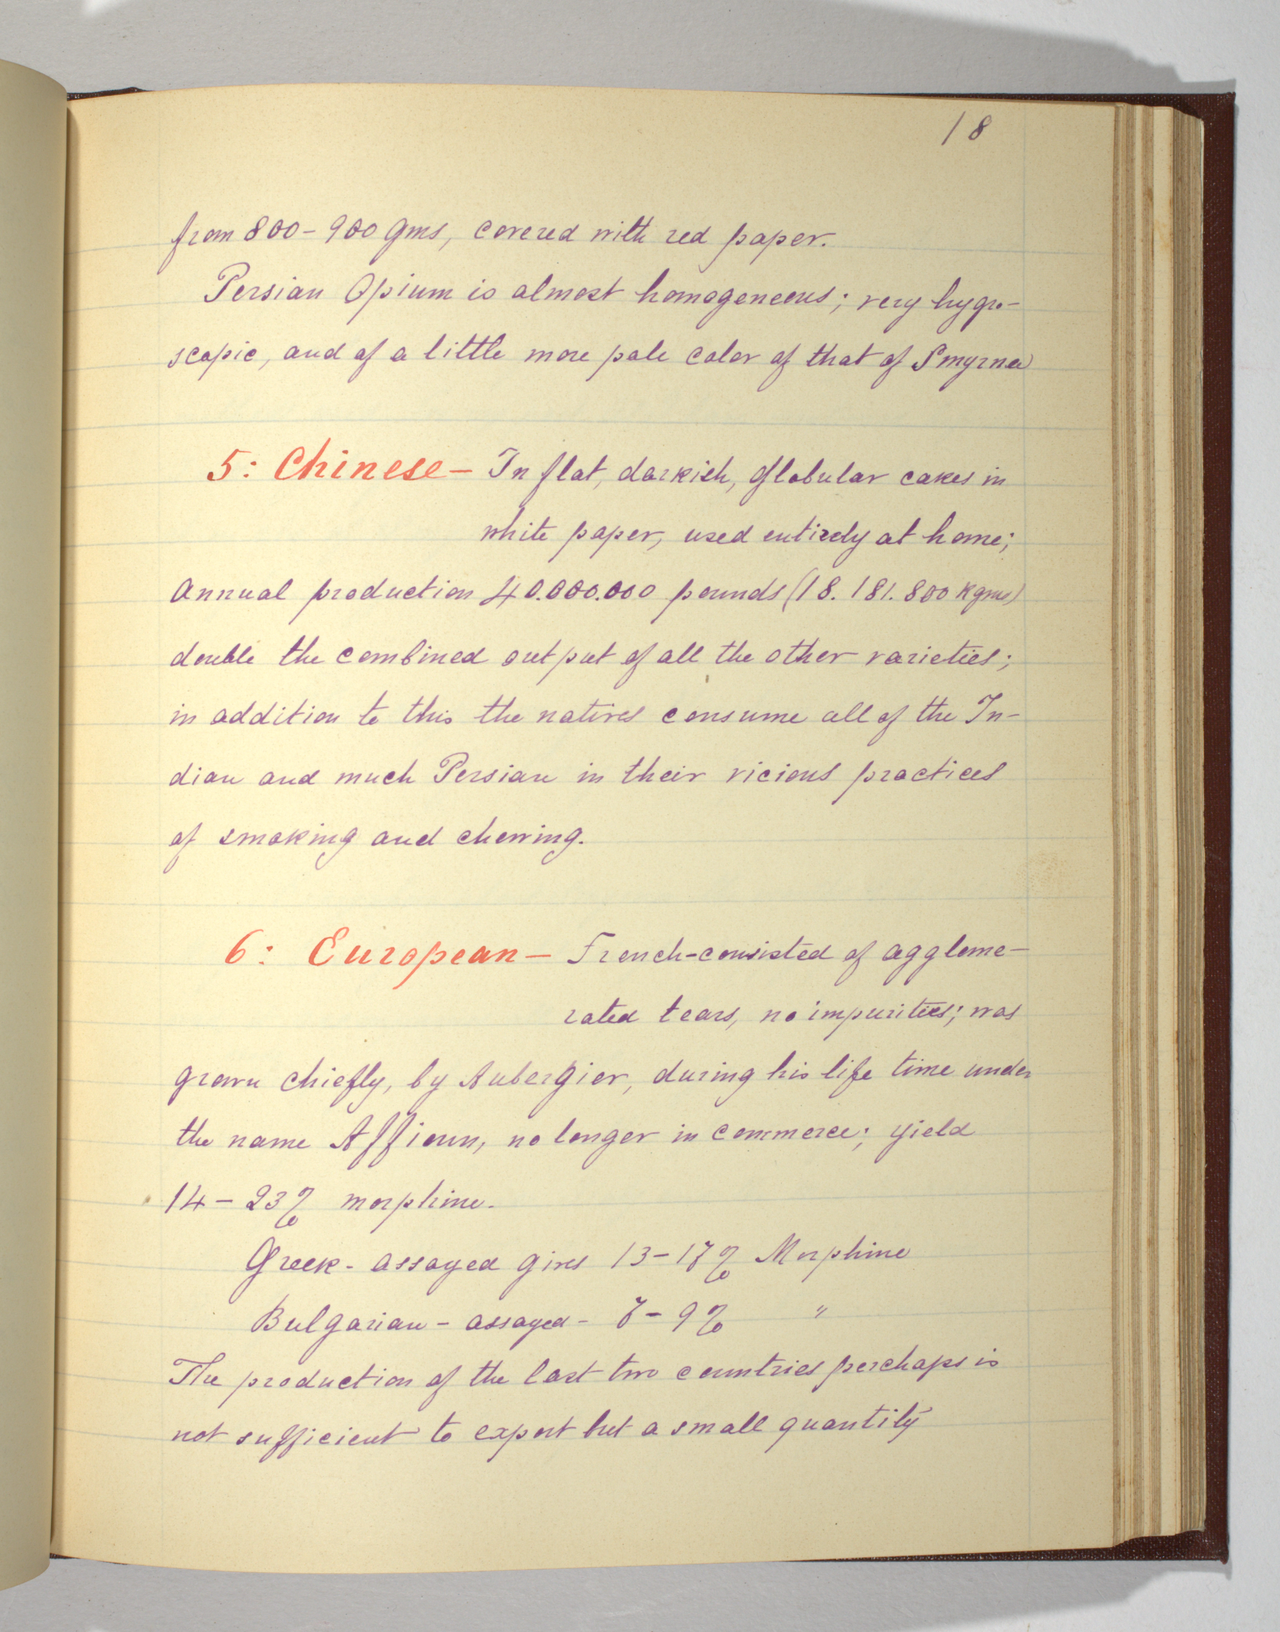 18
from 800-900 gms, covered with red paper.
Persian Opium is almost homogeneous; very hygro-
scopic, and of a little more pale color of that of Smyrna
5: Chinese- In flat, darkish, globular cakes in
white paper, used entirely at home;
Annual production 40.000.000 pounds (18.181.800 Kgms)
double the combined output of all the other varieties;
in addition to this the natives consume all of the In-
dian and much Persian in their vicious practices
of smoking and chewing.
6: European- French-consisted of agglome-
rated tears, no impurities; was
grown chiefly, by Aubergier, during his life time under
the name Affioun, no longer in commerce; yield
14-23% morphine.
Greek- assayed gives 13-17% Morphine
Bulgarian- assayed- 7-9% "
The production of the last two countries perchaps is
not sufficient to export but a small quantity